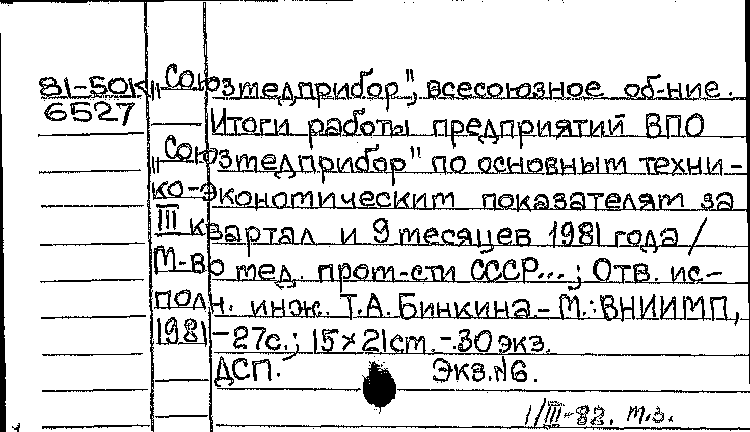 81-50К „Союзмедприбор", всесоюзное об-ние.
6527 Итоги работы предприятий ВПО
„Союзмедприбор" по основным техни-
ко-экономическим показателям за
III квартал и 9 месяцев 1981 года /
М-во мед. пром-сти СССР...; Отв. ис-
полн. инж. Т.А. Бинкина.- М.: ВНИИМП,
1981 -27с.; 15×21см. -.30 экз.
ДСП. Экз.№6.
1/III-82. т.з.